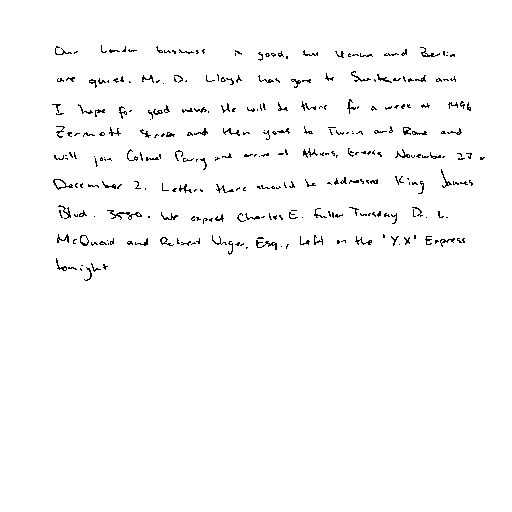 Our London business is good, but Vienna and Berlin
are quiet. Mr. D. Lloyd has gone to Switzerland and
I hope for good news. He will be there for a week at 1496
Zermott Street and then goes to Turin and Rome and
will join Colonel Parry and arrive at Athens, Greece November 27 or
December 2. Letters there should be addressed King James
Blvd. 3580. We expect Charles E. Fuller Tuesday D. L.
McQuaid and Robert Unger, Esq., left on the "Y.X" Express
tonight